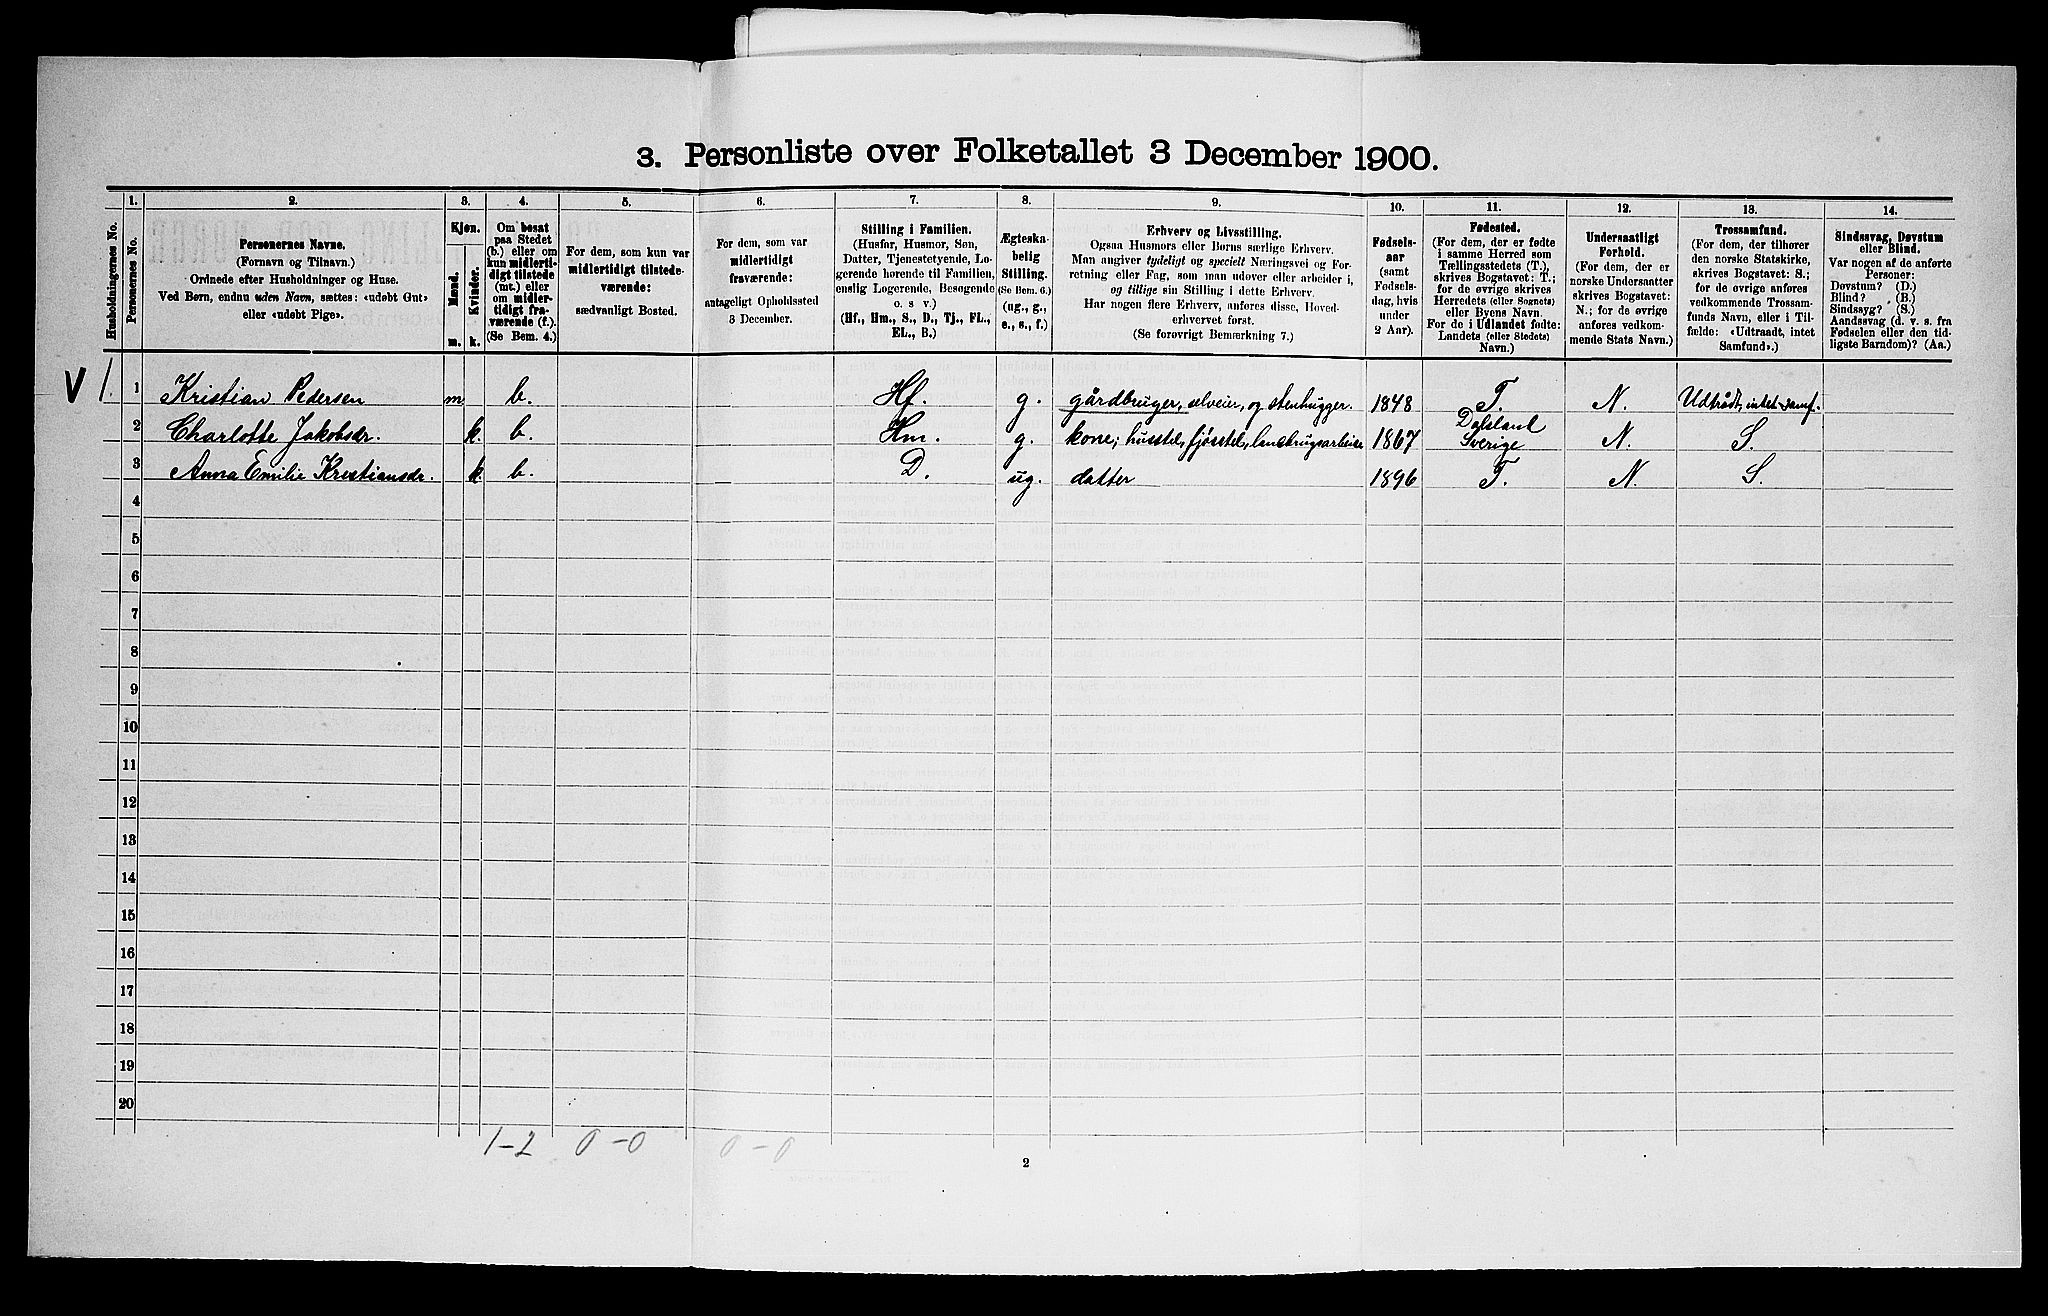 3. Personliste over Folketallet 3 December 1900.
Husholdningernes No.
1.
Personernes No.
2.
Personernes Navne.
(Fornavn og Tilnavn.)
Ordnede efter Husholdninger og Huse.
Ved Børn, endnu uden Navn, sættes: «udøbt Gut»
eller «udøbt Pige».
3.
Kjøn.
Mænd.
Kvinder.
m. k.
4.
Om bosat
paa Stedet
(b.) eller om
kun midlerti-
digt tilstede
(mt.) eller
om midler-
tidigt fra-
værende (f.).
(Se Bem. 4.)
5.
For dem, som kun var
midlertidigt tilstede-
værende:
sædvanligt Bosted.
6.
For dem, som var
midlertidigt
fraværende:
antageligt Opholdssted
3 December.
7.
Stilling i Familien.
(Husfar, Husmor, Søn,
Datter, Tjenestetyende, Lo-
gerende hørende til Familien,
enslig Logerende, Besøgende
o. s v.)
(Hf., Hm., S., D., Tj., FL.,
EL., B.)
8.
Ægteska-
belig
Stilling.
(Se Bem. 6.)
(ug., g.,
e., s., f.)
9.
Erhverv og Livsstilling.
Ogsaa Husmors eller Børns særlige Erhverv.
Man angiver tydeligt og specielt Næringsvei og For-
retning eller Fag, som man udøver eller arbeider i,
og tillige sin Stilling i dette Erhverv.
Har nogen flere Erhverv, anføres disse, Hoved-
erhvervet først.
(Se forøvrigt Bemærkning 7.)
10.
Fødsels-
aar
(samt
Fødsels-
dag, hvis
under
2 Aar).
11.
Fødested.
(For dem, der er fødte
i samme Herred som
Tællingsstedets (T.),
skrives Bogstavet: T.;
for de øvrige skrives
Herredets (eller Sognets)
eller Byens Navn.
For de i Udlandet fødte:
Landets (eller Stedets)
Navn.)
12.
Undersaatligt
Forhold.
(For dem, der er
norske Undersaatter
skrives Bogstavet:
N.; for de øvrige
anføres vedkom-
mende Stats Navn.)
13.
Trossamfund.
(For dem, der tilhører
den norske Statskirke,
skrives Bogstavet: S.;
for de øvrige anføres
vedkommende Trossam-
funds Navn, eller i Til-
fælde: «Udtraadt, intet
Samfund».)
14.
Sindssvag, Døvstum
eller Blind.
Var nogen af de anførte
Personer:
Døvstum? (D.)
Blind? (B.)
Sindssyg? (S.)
Aandssvag (d. v. s. fra
Fødselen eller den tid-
ligste Barndom)? (Aa.)
V 1. 1 Kristian Pedersen m b. Hf. g. gårdbruger, selveier, og stenhugger. 1848 T. N. Udtrådt, intet samf.
2 Charlotte Jakobsdr. k. b. Hm. g. kone; husstel, fjøsstel, 1867 Dalsland Sverige N. S.
3 Anna Emilie Kristiansdr. k. b. D. ug. datter 1896 T. N. S.
4
5
6
7
8
9
10
11
12
13
14
15
16
17
18
19
20
1-2 0-0 0-0
2